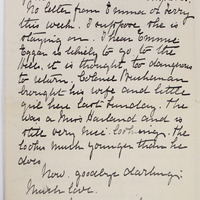 No letter from Emma at Kerry
this week. I suppose she is
staying on. I hear Emmie
Eggar is likely to go to the
Hills, it is thought to dangerous
to return. Colonel Busheman
brought his wife and little
girl here last Sunday. She
was a Miss Harland and is
still very nice looking. She
looks much younger than he
does
Now, goodbye darling;
Much love.